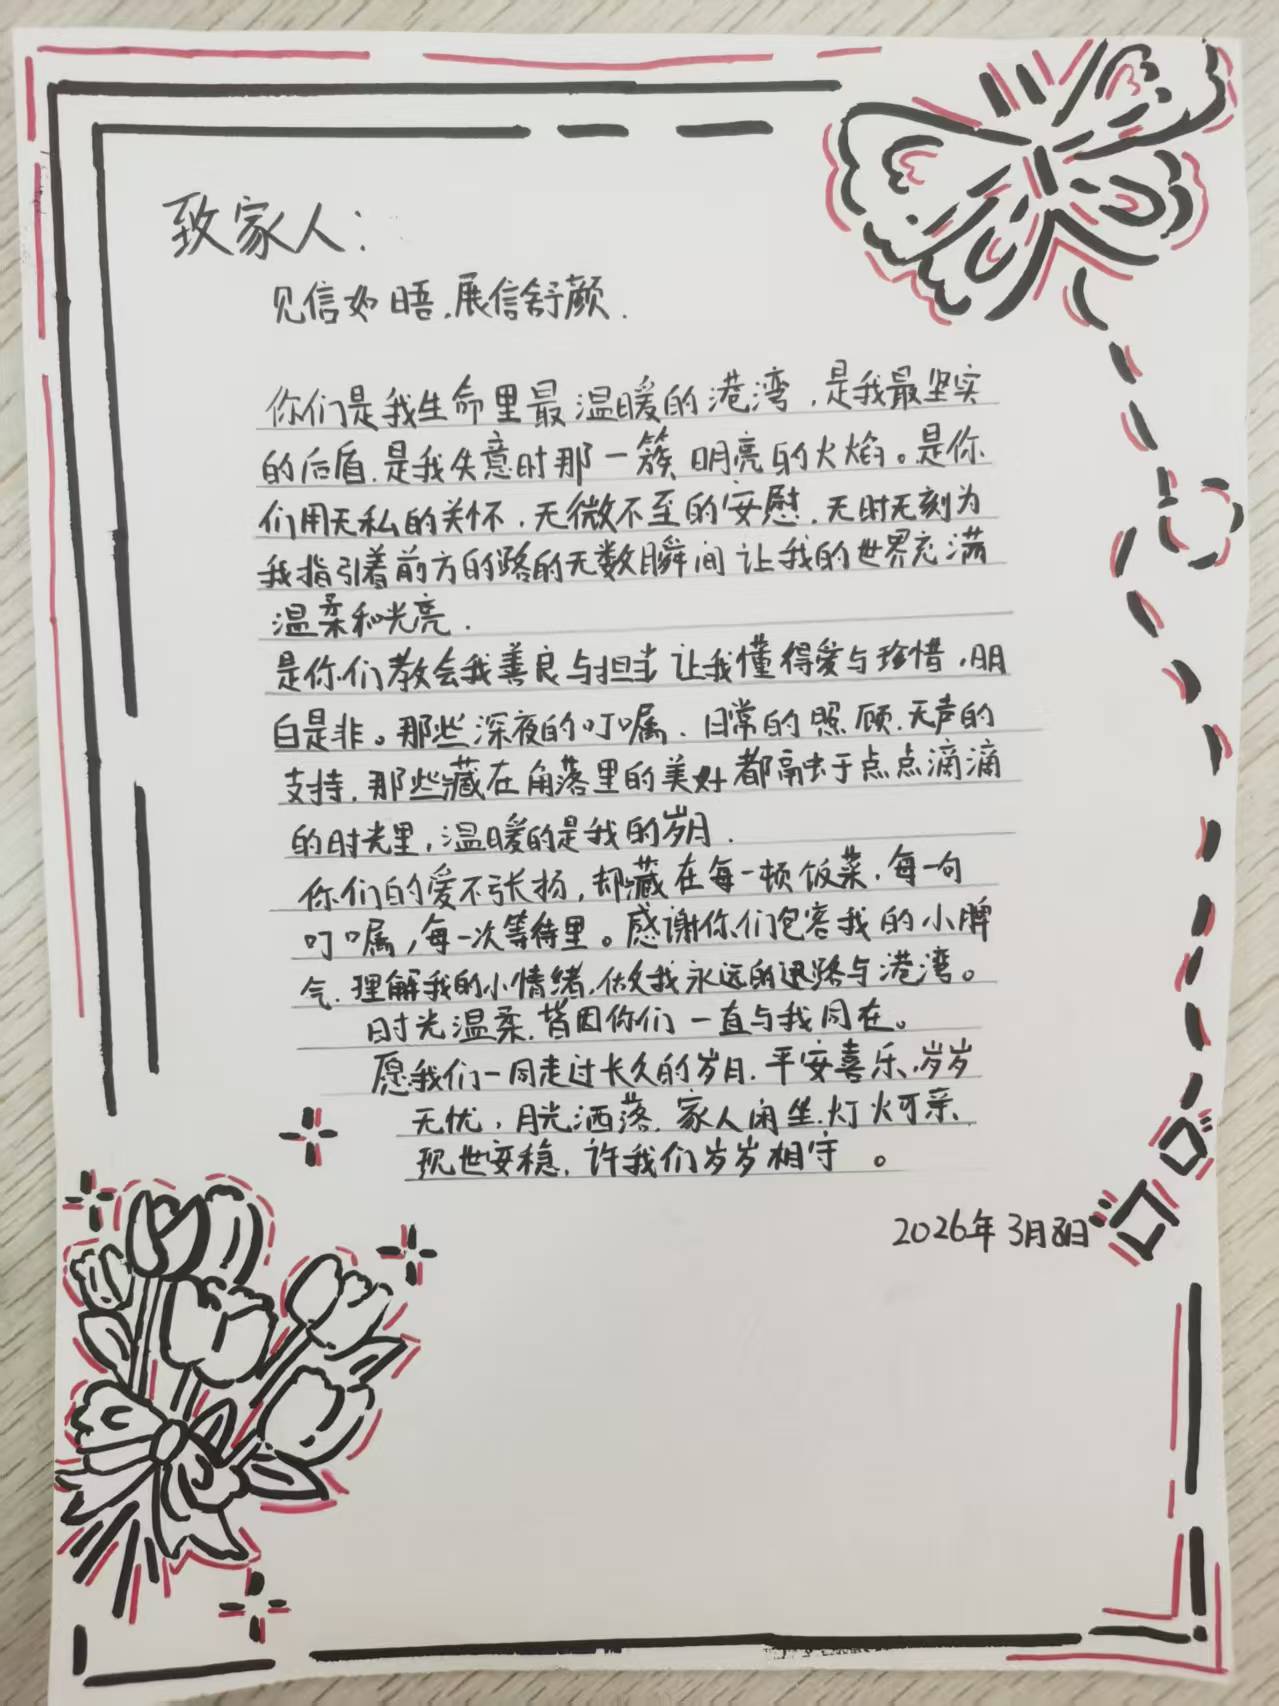 致家人：
见信如晤.展信舒颜.
你们是我生命里最温暖的港湾,是我最坚实
的后盾.是我失意时那一簇明亮的火焰。是你
们用无私的关怀.无微不至的安慰.无时无刻为
我指引着前方的路的无数瞬间让我的世界充满
温柔和光亮.
是你们教会我善良与担当让我懂得爱与珍惜.明
白是非。那些深夜的叮嘱.日常的照顾.无声的
支持.那些藏在角落里的美好都融于点点滴滴
的时光里,温暖的是我的岁月.
你们的爱不张扬,却藏在每一顿饭菜.每一句
叮嘱,每一次等待里。感谢你们包容我的小脾
气.理解我的小情绪.做我永远的退路与港湾。
时光温柔.皆因你们一直与我同在。
愿我们一同走过长久的岁月.平安喜乐.岁岁
无忧,月光洒落.家人闲坐.灯火可亲.
现世安稳.许我们岁岁相守。
2026年3月8日